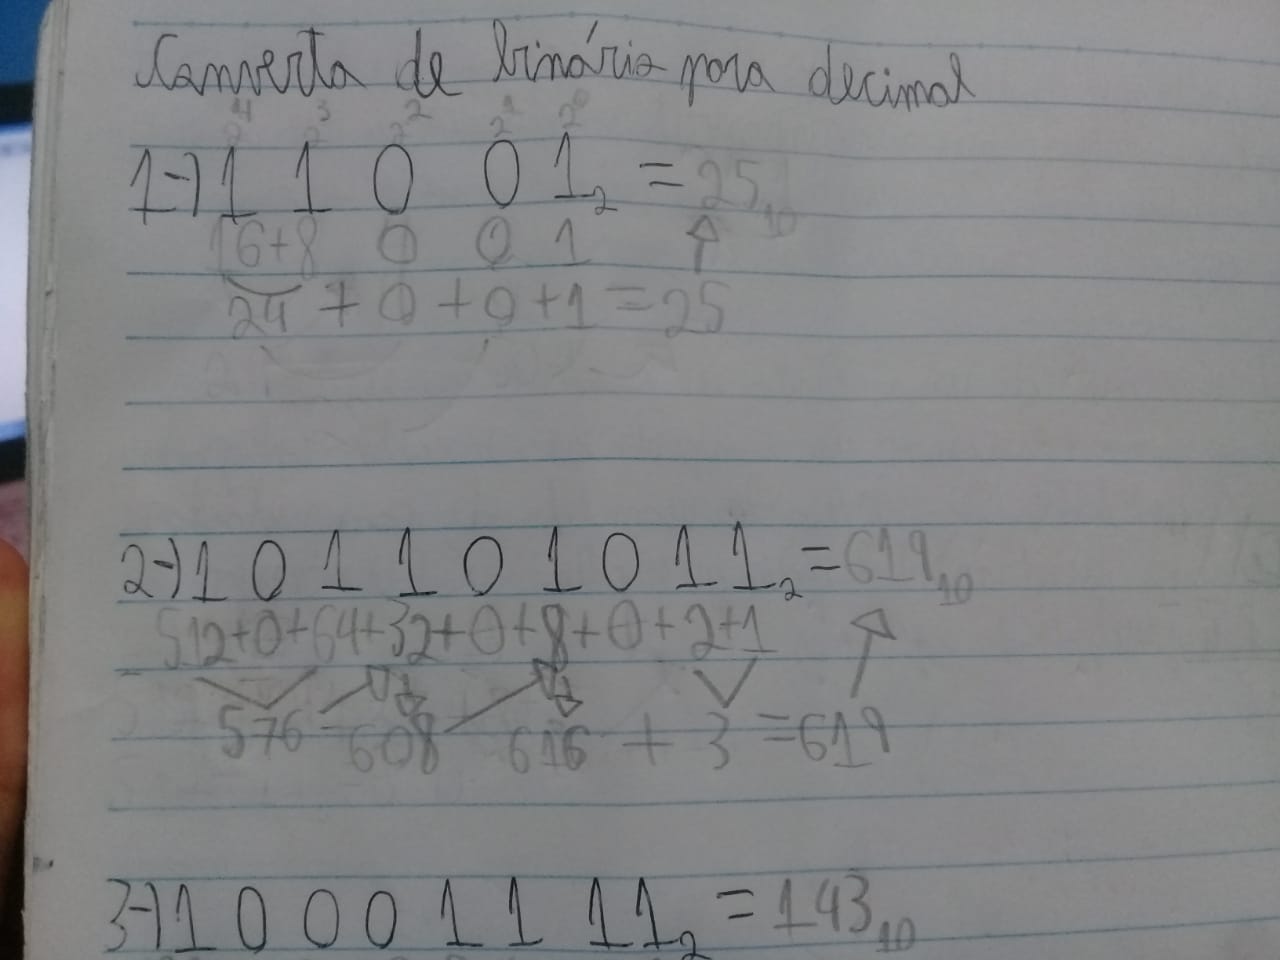 Converta de binário para decimal
2⁴ 2³ 2² 2¹ 2⁰
1-) 1 1 0 0 1₂ = 25₁₀
16+8 0 0 1
24 + 0 + 0 + 1 = 25
2-) 1 0 1 1 0 1 0 1 1₂ = 619₁₀
512+0+64+32+0+8+0+2+1
576 - 608 616 + 3 = 619
3-) 1 0 0 0 1 1 1 1₂ = 143₁₀